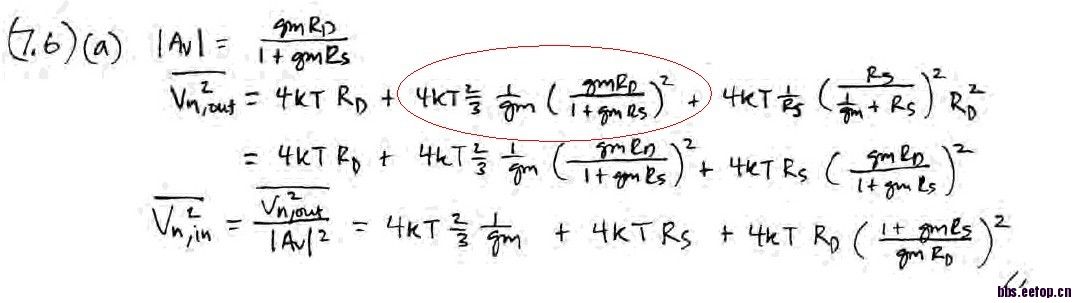 (7.6) (a) |Av| = gmRD / (1 + gmRs)
V̅n,out² = 4kT RD + 4kT 2/3 1/gm (gmRD / (1 + gmRs))² + 4kT 1/Rs (Rs / (1/gm + Rs))² RD²
= 4kT RD + 4kT 2/3 1/gm (gmRD / (1 + gmRs))² + 4kT Rs (gmRD / (1 + gmRs))²
V̅n,in² = V̅n,out² / |Av|² = 4kT 2/3 1/gm + 4kT Rs + 4kT RD ((1 + gmRs) / gmRD)²
bbs.eetop.cn